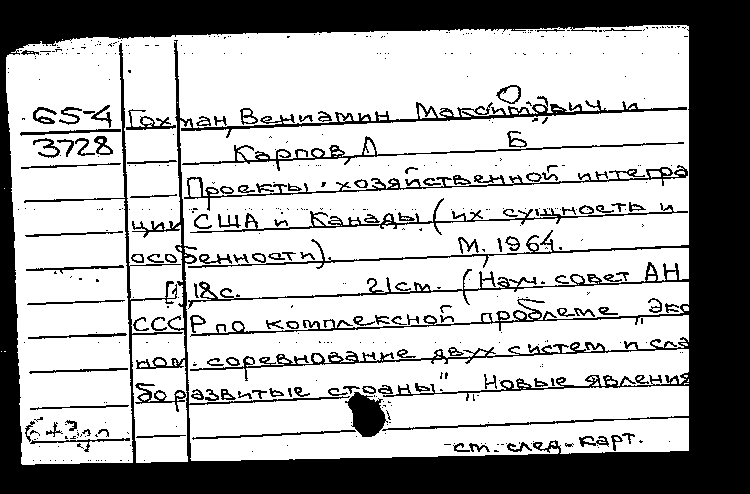 65-4 Гохман, Вениамин Максимович и
3728 Карпов, Л Б
Проекты хозяйственной интегра
ции США и Канады (их сущность и
особенности). М, 1964.
[1], 18 с. 21 см. (Науч. совет АН
СССР по комплексной проблеме „Эко
ном. соревнование двух систем и сла
боразвитые страны." „Новые явления
см. след. карт.